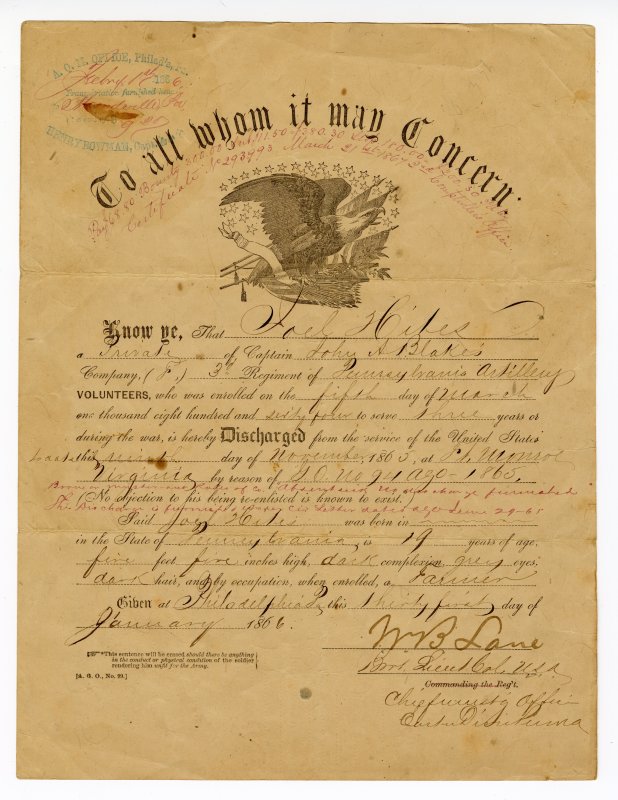 A. Q. M. OFFICE, Philad'a, Pa.
Feby 1st 1866
Transportation furnished
HENRY BOWMAN, Capt.
To all whom it may Concern:
Pay 68.80 Bounty 200.00
Certificate No 293993 March 21
Know ye, That Joel Hites
a Private of Captain John A Blake's
Company, (F,) 3d Regiment of Pennsylvania Artillery
VOLUNTEERS, who was enrolled on the fifth day of March
one thousand eight hundred and sixty four to serve three years or
during the war, is hereby Discharged from the service of the United States
this ninth day of November, 1865, at Ft. Monroe
Virginia by reason of G.O. No 94 AGO-1865.
(No objection to his being re-enlisted is known to exist.)
This Discharge is furnished
Said Joel Hites was born in
in the State of Pennsylvania, is 19 years of age,
five feet five inches high, dark complexion, grey eyes,
dark hair, and by occupation, when enrolled, a Farmer
Given at Philadelphia Pa this thirty first day of
January 1866.
W B Lane
Bvt Lieut Col. U.S.A
Commanding the Reg't.
Chief Must'g Officer
East Dist Penna
This sentence will be erased should there be anything
in the conduct or physical condition of the soldier
rendering him unfit for the Army.
[A. G. O., No. 99.]